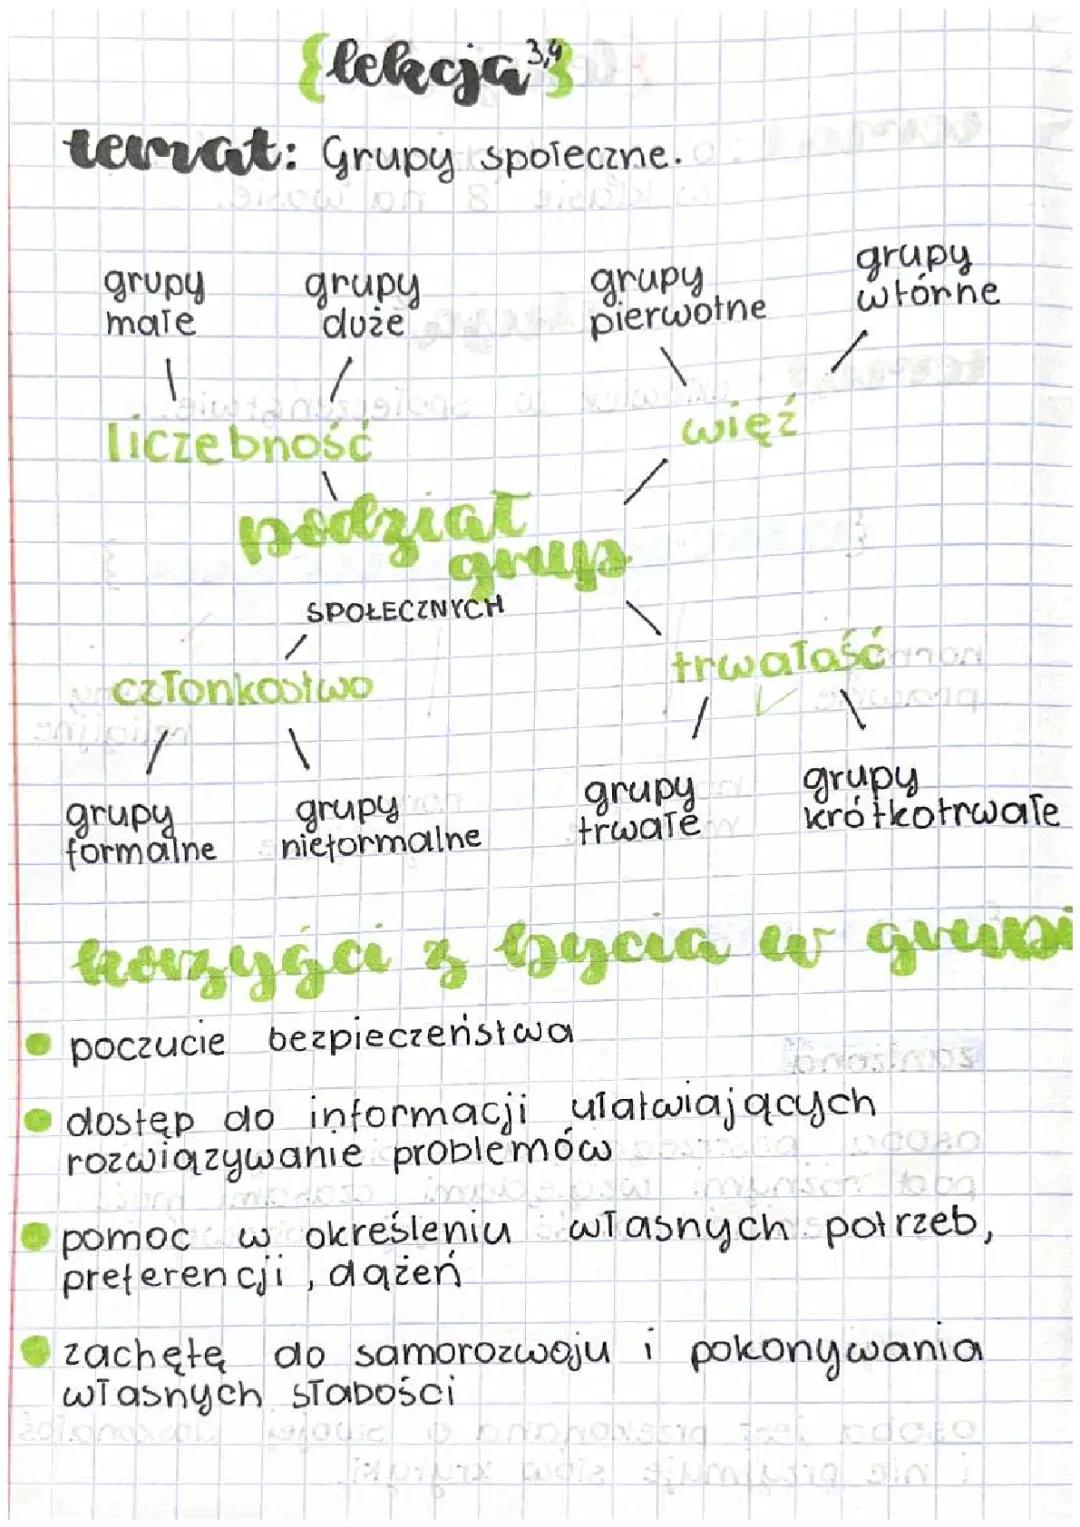 {lekcja 3,4}
temat: Grupy społeczne.
grupy małe
grupy duże
grupy pierwotne
grupy wtórne
liczebność
więź
podział
grup
SPOŁECZNYCH
członkostwo
trwałaść
grupy formalne
grupy nieformalne
grupy trwałe
grupy krótkotrwałe
korzyści z bycia w grupi
poczucie bezpieczeństwa
dostęp do informacji ułatwiających
rozwiązywanie problemów
pomoc w określeniu własnych potrzeb,
preferencji, dążeń
zachętę do samorozwoju i pokonywania
własnych słabości